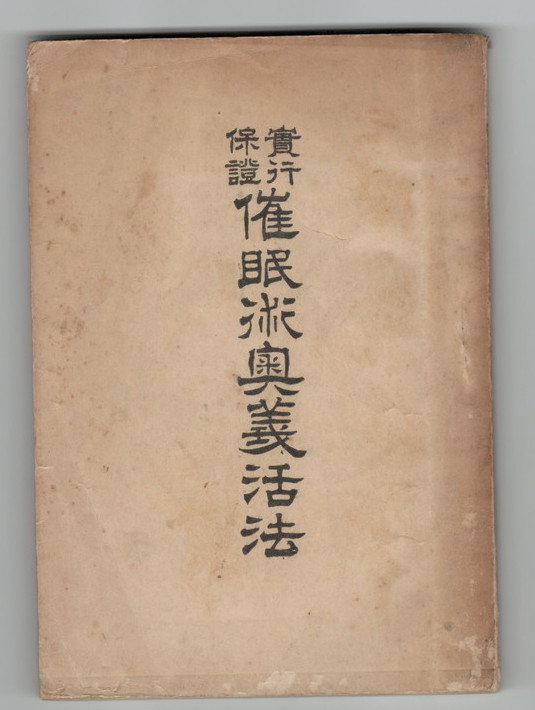 實行
保證
催眠術奥義活法